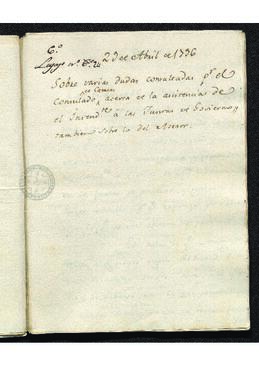 6.º
Legajo nº 2 de Abril de 1796
Sobre varias dudas consultadas pr el
de Comerº
Consulado, acerca de la asistencia de
el Intendte á las Juntas de Govierno, y
tambien sobre la del Asesor.